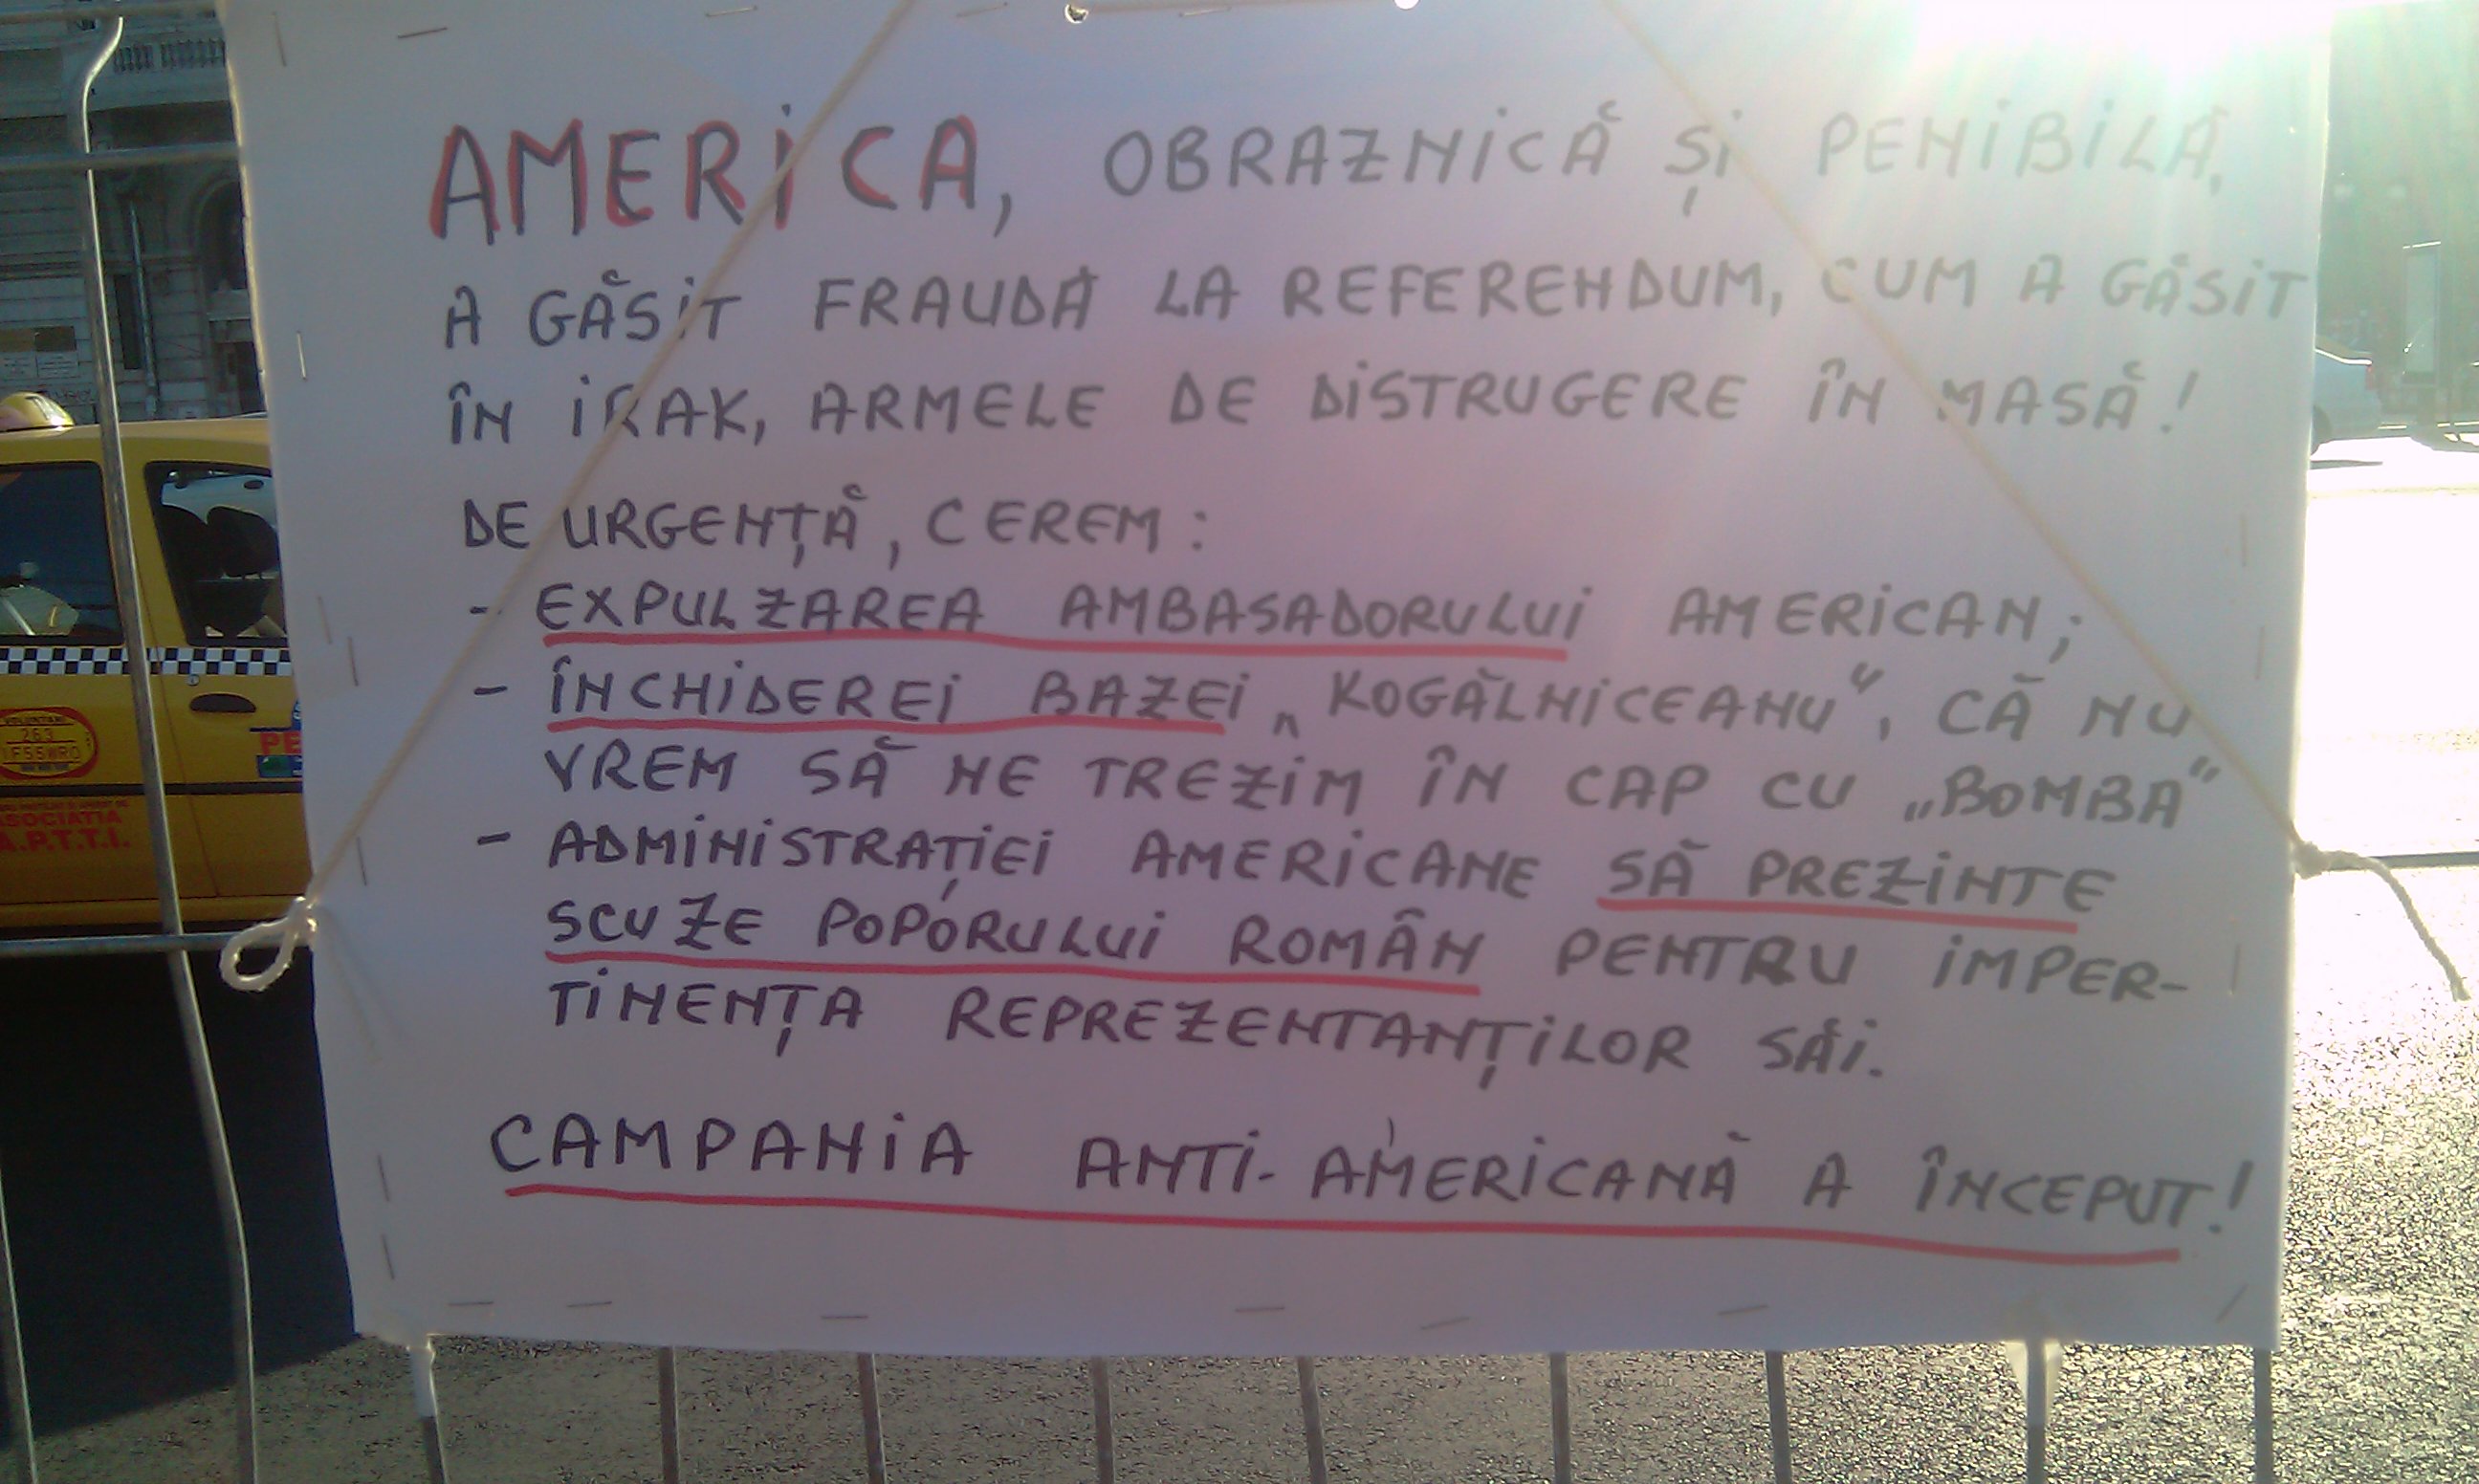 AMERICA, OBRAZNICĂ ȘI PENIBILĂ,
A GĂSIT FRAUDĂ LA REFERENDUM, CUM A GĂSIT
ÎN IRAK, ARMELE DE DISTRUGERE ÎN MASĂ!
DE URGENȚĂ, CEREM:
- EXPULZAREA AMBASADORULUI AMERICAN;
- ÎNCHIDEREI BAZEI „KOGĂLNICEANU", CĂ NU
VREM SĂ NE TREZIM ÎN CAP CU „BOMBA"
- ADMINISTRAȚIEI AMERICANE SĂ PREZINTE
SCUZE POPORULUI ROMÂN PENTRU IMPER-
TINENȚA REPREZENTANȚILOR SĂI.
CAMPANIA ANTI-AMERICANĂ A ÎNCEPUT!
VOLUNTARI
263
IF55WRO
PE
ASOCIATIA
A.P.T.T.I.